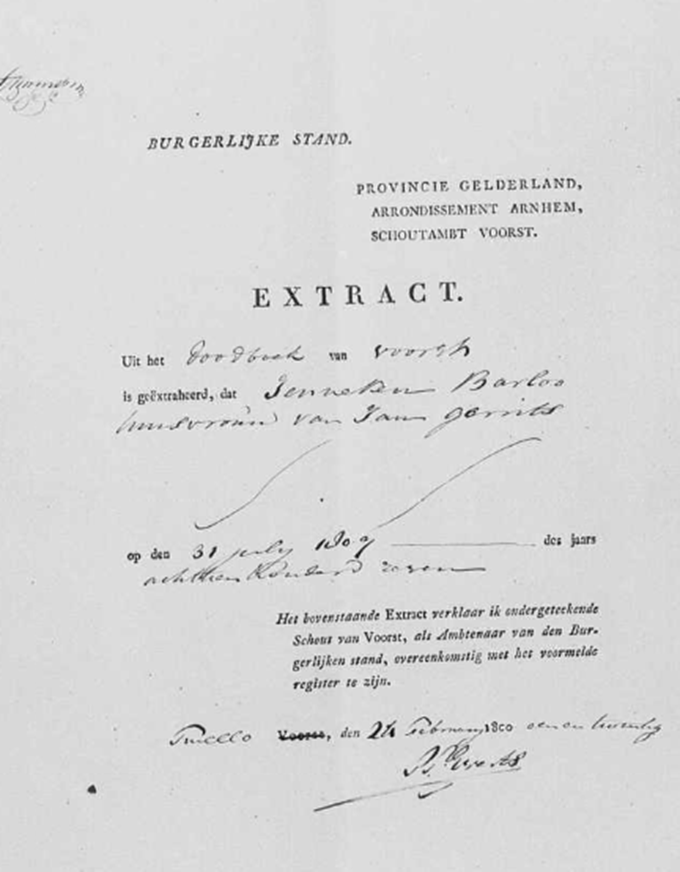 BURGERLIJKE STAND.
PROVINCIE GELDERLAND,
ARRONDISSEMENT ARNHEM,
SCHOUTAMBT VOORST.
EXTRACT.
Uit het doodboek van voorst
is geëxtraheerd, dat Jenneken Barloo
huisvrouw van Jan gerrits
op den 31 july 1807 des jaars
achttien honderd zeven
Het bovenstaande Extract verklaar ik ondergeteekende
Schout van Voorst, als Ambtenaar van den Bur-
gerlijken stand, overeenkomstig met het voormelde
register te zijn.
Twello Voorst, den Februarij 1800 een en twintig